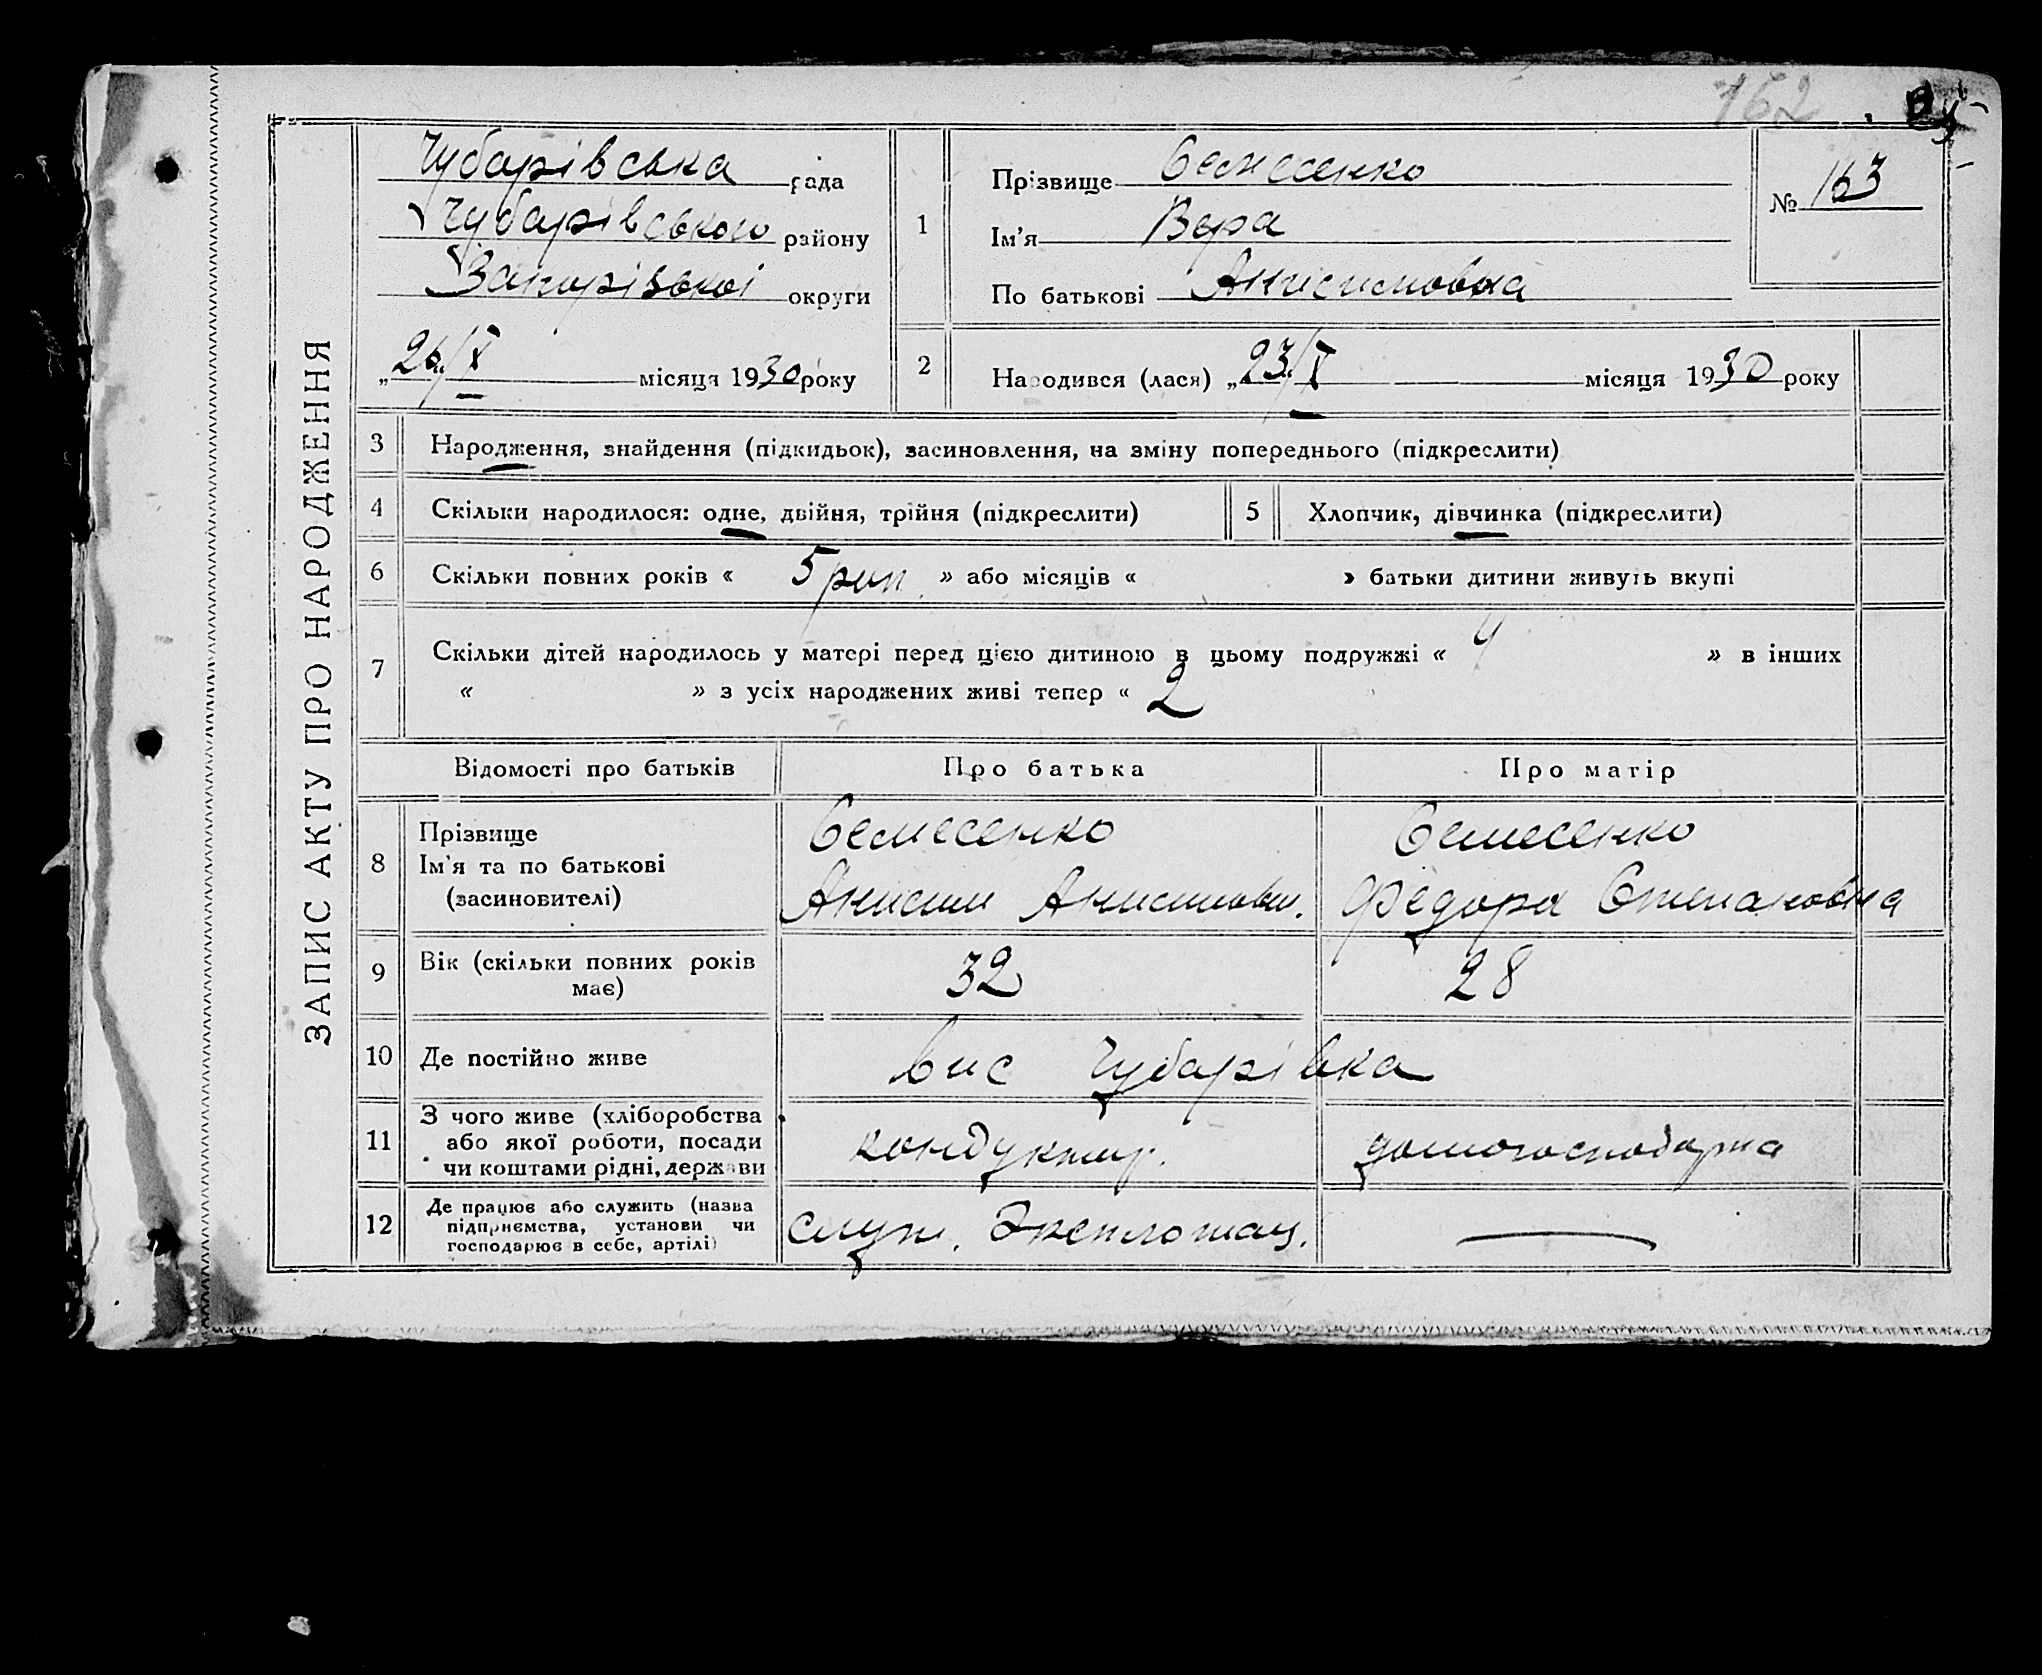 162
ЗАПИС АКТУ ПРО НАРОДЖЕННЯ
Чубарівська рада
Чубарівського району
Запорізької округи
„26/X місяця 1930 року
1
Прізвище Семесенко
Ім'я Вера
По батькові Анисимовна
№ 163
2
Народився (лася) „23/X місяця 1930 року
3 Народження, знайдення (підкидьок), засиновлення, на зміну попереднього (підкреслити)
4 Скільки народилося: одне, двійня, трійня (підкреслити) 5 Хлопчик, дівчинка (підкреслити)
6 Скільки повних років « 5 рок. » або місяців « » батьки дитини живуть вкупі
7 Скільки дітей народилось у матері перед цією дитиною в цьому подружжі « 4 » в інших
« » з усіх народжених живі тепер « 2
Відомості про батьків Про батька Про матір
8 Прізвище Семесенко Семесенко
Ім'я та по батькові
(засиновителі) Анисим Анисимов. Федора Степановна
9 Вік (скільки повних років 32 28
має)
10 Де постійно живе Вис Чубарівка
11 З чого живе (хліборобства
або якої роботи, посади кондуктор. домогосподарка
чи коштами рідні, держави
12 Де працює або служить (назва
підприємства, установи чи служ. Эксплотац.
господарює в себе, артілі)